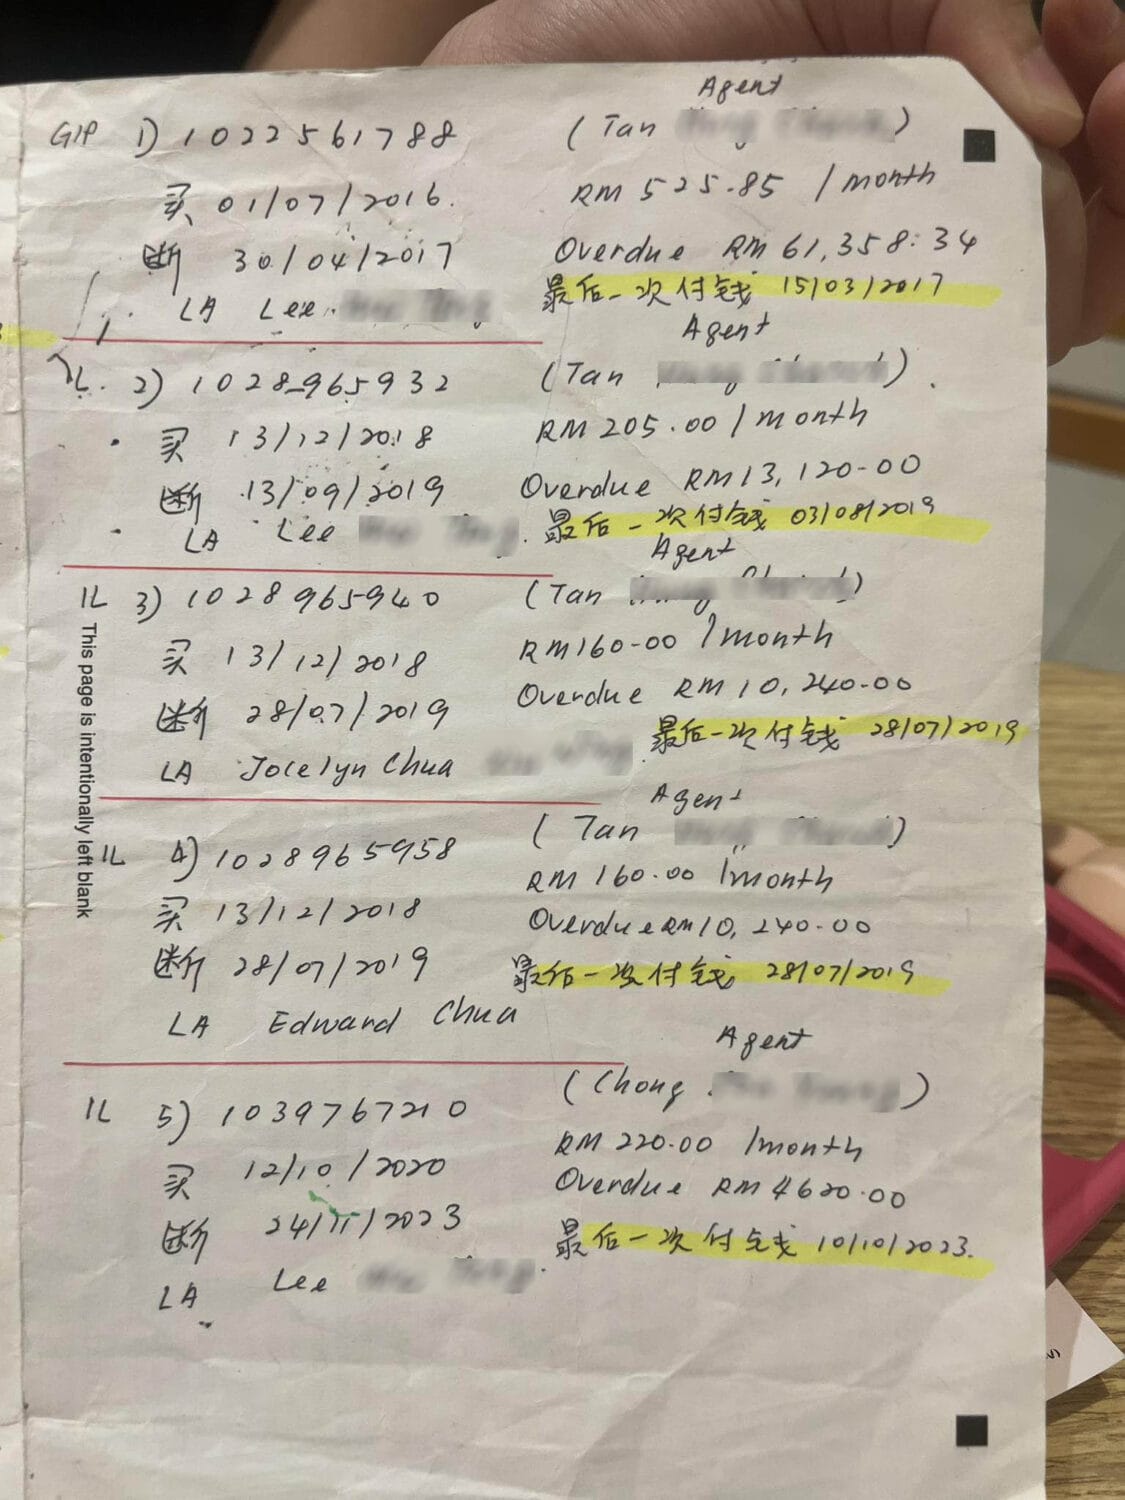 Agent
GIP 1) 1022561788 (Tan )
买 01/07/2016. RM 525.85 /month
断 30/04/2017 Overdue RM 61,358.34
LA Lee 最后一次付钱 15/03/2017
Agent
IL. 2) 1028965932 (Tan ).
买 13/12/2018 RM 205.00 /month
断 13/09/2019 Overdue RM13,120.00
LA Lee 最后一次付钱 03/08/2019
Agent
IL 3) 1028965940 (Tan )
买 13/12/2018 RM160.00 /month
断 28/07/2019 Overdue RM 10,240.00
最后一次付钱 28/07/2019
LA Jocelyn Chua
Agent
IL 4) 1028965958 (Tan )
买 13/12/2018 RM 160.00 /month
断 28/07/2019 Overdue RM10,240.00
最后一次付钱 28/07/2019
LA Edward Chua
Agent
IL 5) 1039767210 (Chong )
买 12/10/2020 RM 220.00 /month
断 24/11/2023 Overdue RM 4620.00
LA Lee 最后一次付钱 10/10/2023.
This page is intentionally left blank